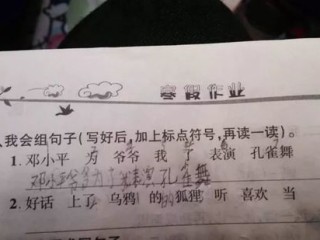 寒假作业
我会组句子（写好后，加上标点符号，再读一读）。
1. 邓小平 为 爷爷 我 了 表演 孔雀舞
邓小平爷爷为了我表演孔雀舞
2. 好话 上了 乌鸦 的 狐狸 听 喜欢 当